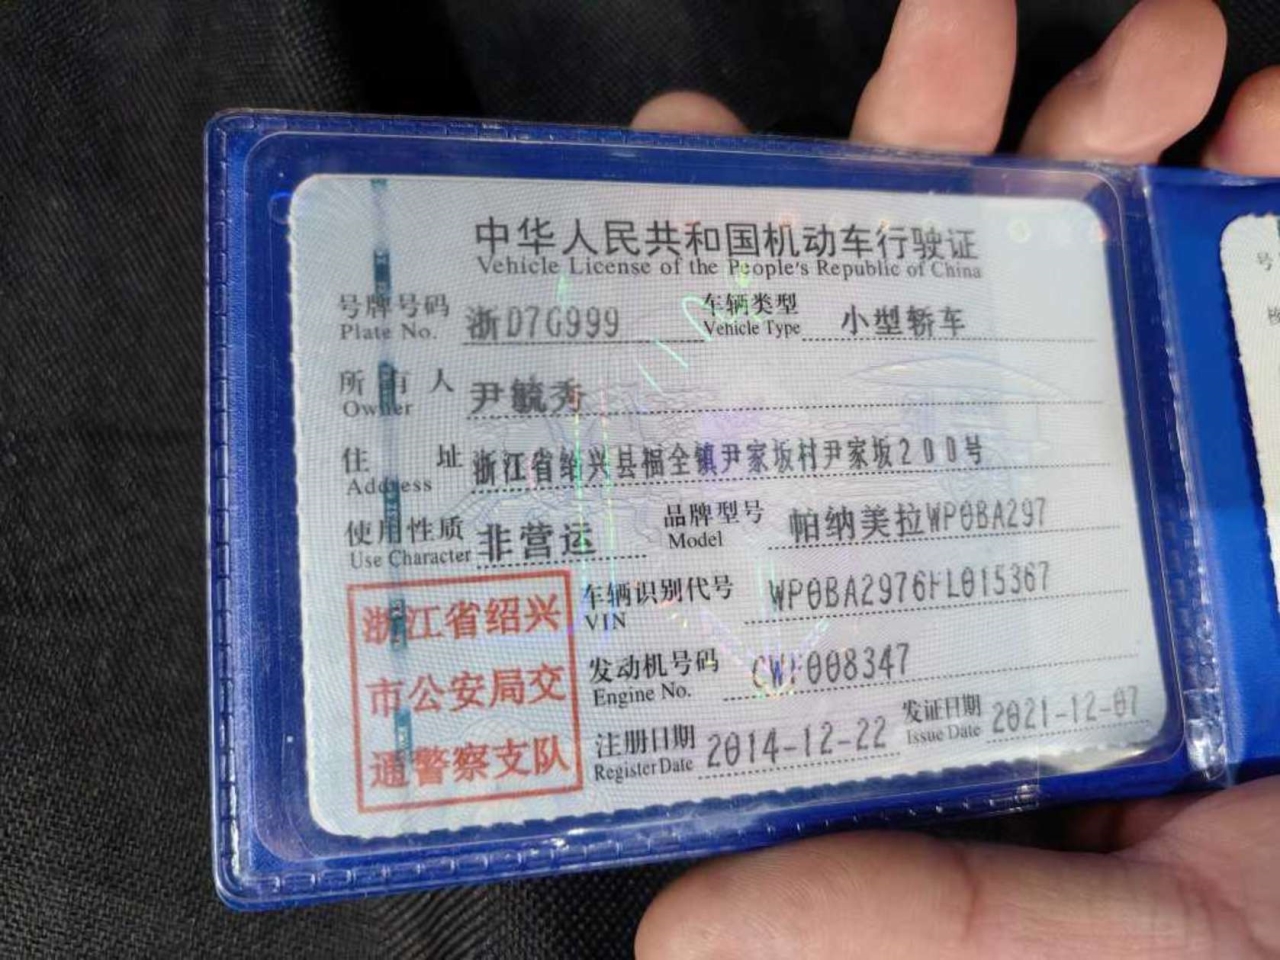 中华人民共和国机动车行驶证
Vehicle License of the People's Republic of China
号牌号码 浙D7G999 车辆类型 小型轿车
Plate No. Vehicle Type
所有人 尹毓秀
Owner
住址 浙江省绍兴县福全镇尹家坂村尹家坂200号
Address
使用性质 非营运 品牌型号 帕纳美拉WP0BA297
Use Character Model
车辆识别代号 WP0BA2976FL015367
VIN
发动机号码 CWF008347
Engine No.
注册日期 2014-12-22 发证日期 2021-12-07
Register Date Issue Date
浙江省绍兴
市公安局交
通警察支队
号